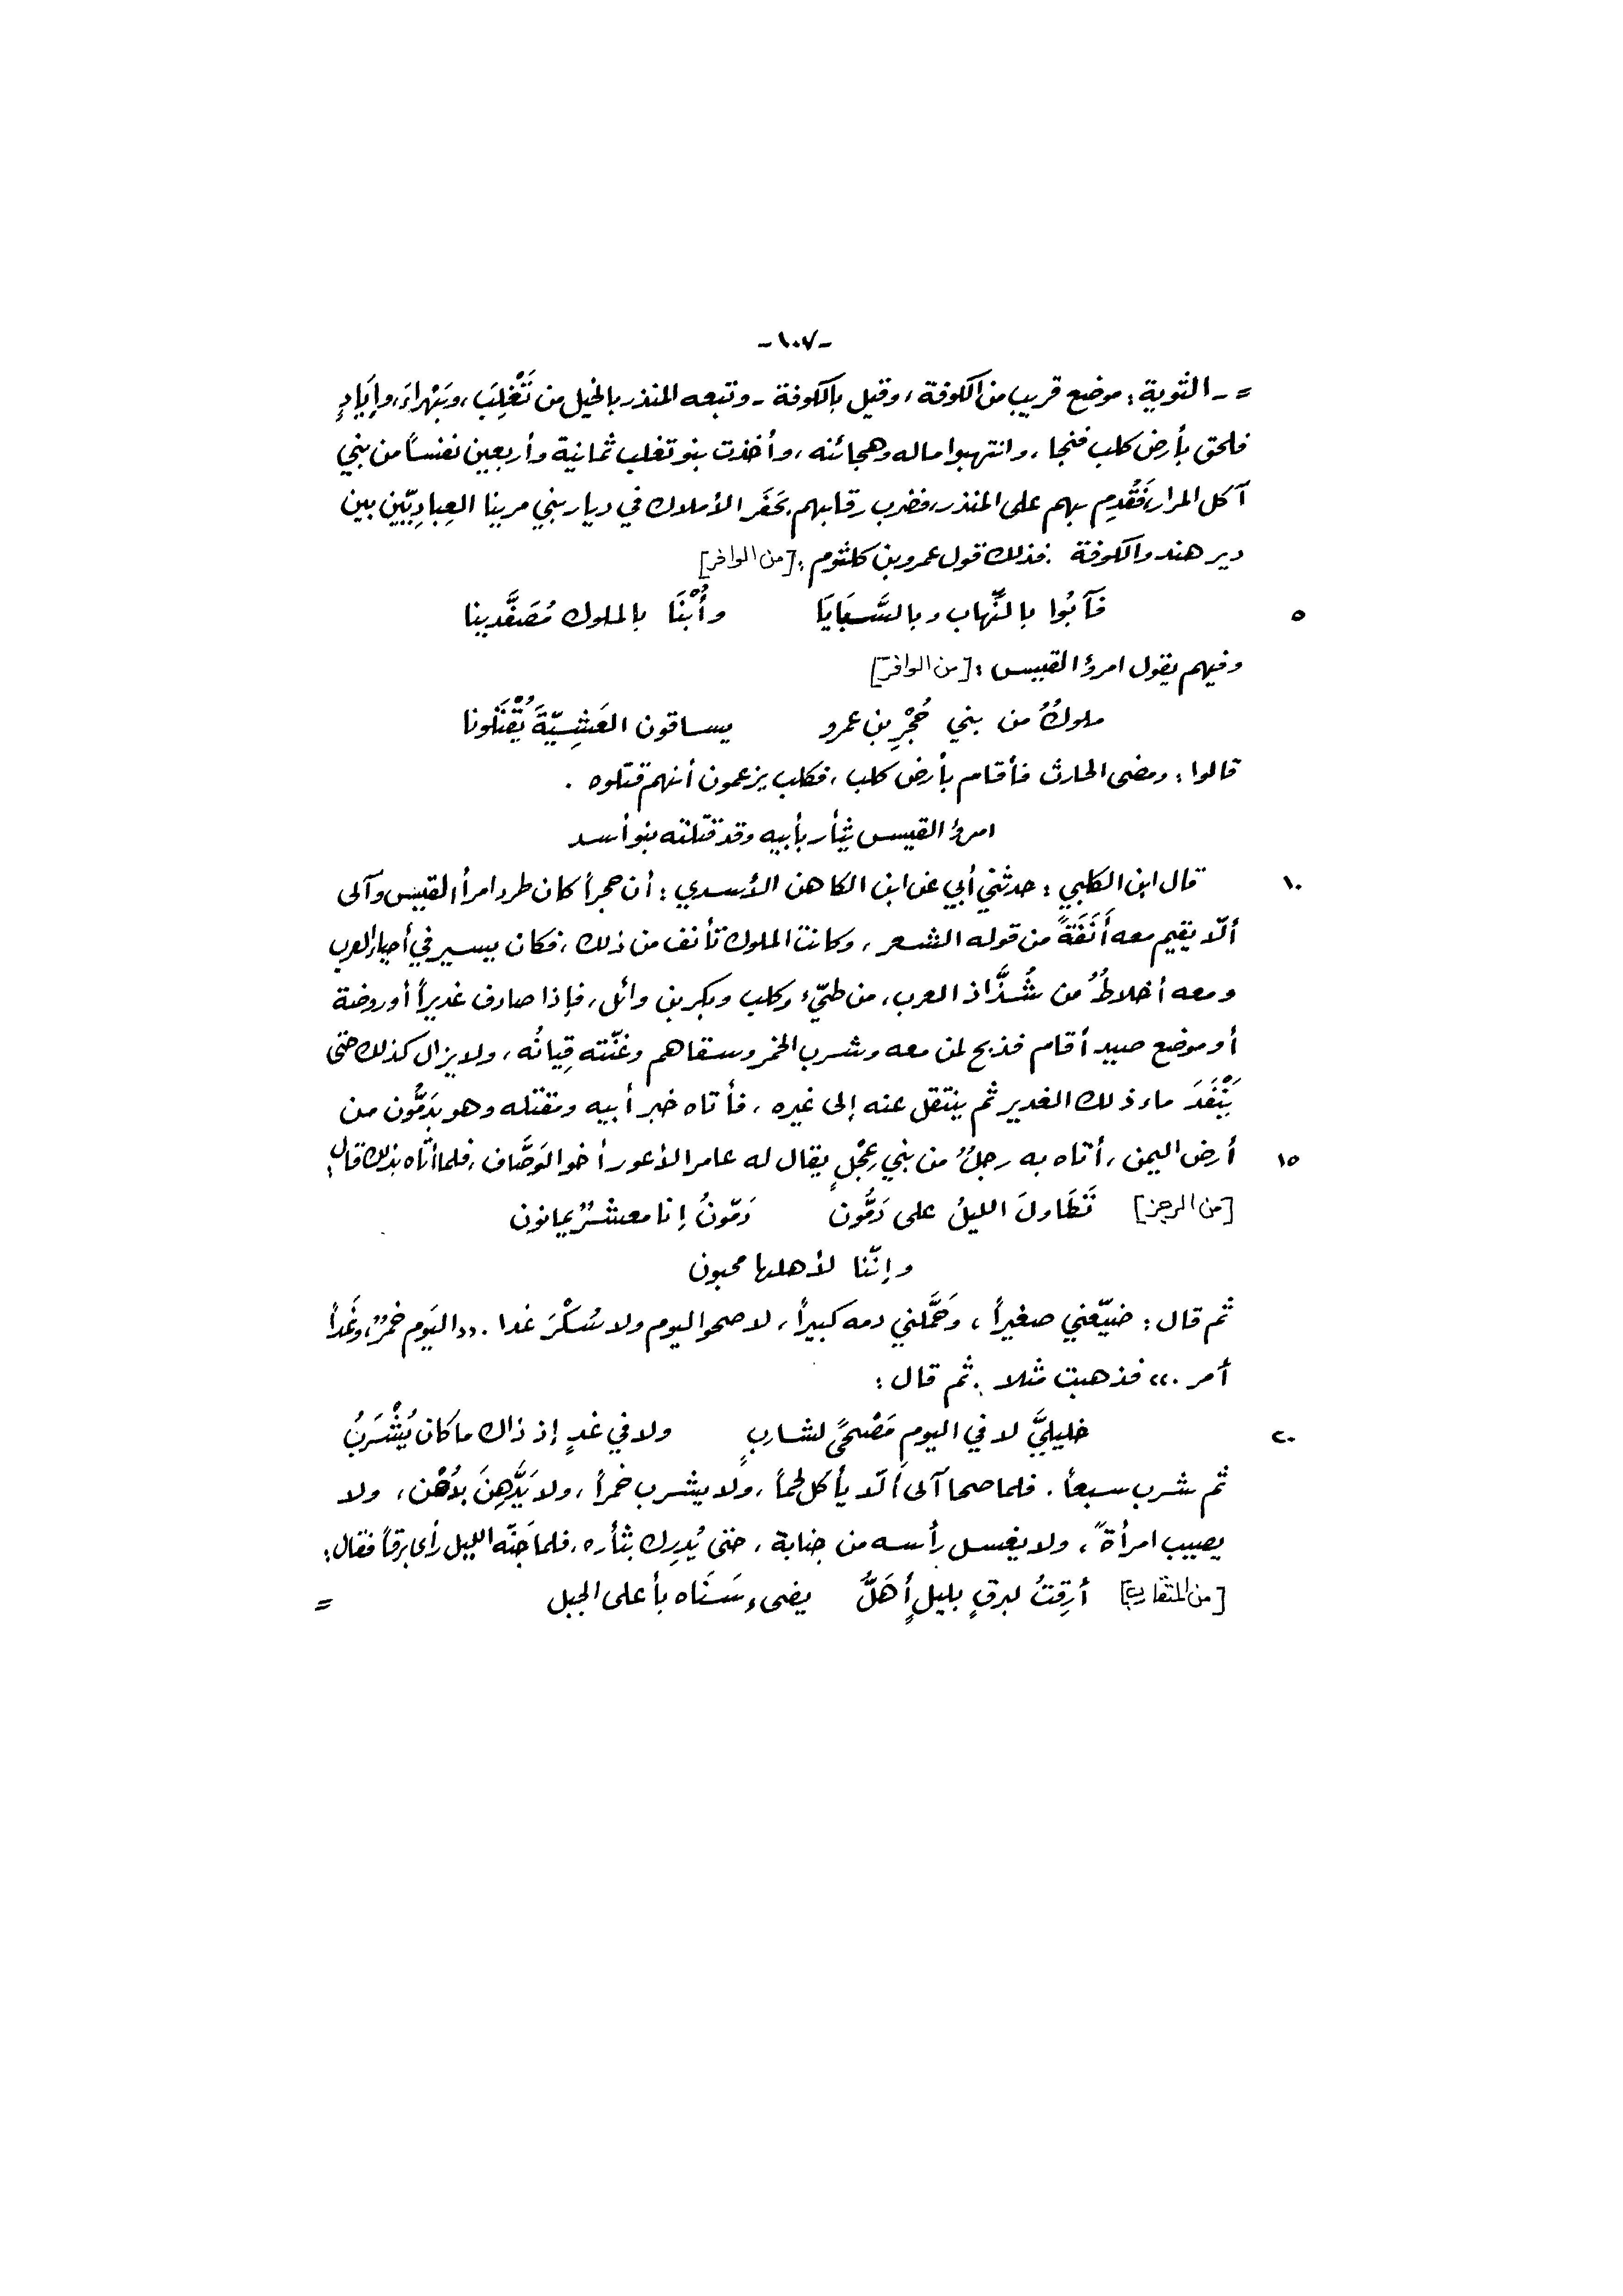 -١٠٧-
= - الثوية: موضع قريب من الكوفة، وقيل بالكوفة - وتبعه المنذر بالخيل من تَغْلِبَ، وبَهْراءَ، وإيادٍ
فلحق بأرض كلب فنجا، وانتهبوا ماله وهجائنه، وأخذت بنو تغلب ثمانية وأربعين نفساً من بني
آكل المرار، فَقُدِم بهم على المنذر، فضرب رقابهم بحَفَر الأملاك في ديار بني مرينا العِبادِيّين بين
دير هند والكوفة. فذلك قول عمرو بن كلثوم: [من الوافر]
٥ فَآبُوا بالنِّهاب وبالسَّبَايَا وأُبْنَا بالملوك مُصَفَّدينا
وفيهم يقول امرؤ القيس: [من الوافر]
ملوكٌ من بني حُجْرِ بن عمرو يساقون العَشِيّةَ يُقْتَلُونا
قالوا: ومضى الحارث فأقام بأرض كلب، فكلب يزعمون أنهم قتلوه.
امرؤ القيس يثأر بأبيه وقد قتلته بنو أسد
١٠ قال ابن الكلبي: حدثني أبي عن ابن الكاهن الأسدي: أن حجراً كان طرد امرأ القيس وآلى
ألّا يقيم معه أَنَفَةً من قوله الشعر، وكانت الملوك تأنف من ذلك، فكان يسير في أحياء العرب
ومعه أخلاطٌ من شُذَّاذ العرب، من طيّء وكلب وبكر بن وائل، فإذا صادف غديراً أو روضة
أو موضع صيد أقام فذبح لمن معه وشرب الخمر وسقاهم وغنّته قِيانُه، ولا يزال كذلك حتى
يَنْفَدَ ماء ذلك الغدير ثم ينتقل عنه إلى غيره، فأتاه خبر أبيه ومقتله وهو بدَمُّون من
١٥ أرض اليمن، أتاه به رجلٌ من بني عِجْلٍ يقال له عامر الأعور أخو الوَصَّاف، فلما أتاه بذلك قال:
[من الرجز] تَطَاوَلَ الليلُ على دَمُّون دَمّونُ إنا معشرٌ يمانون
وإنّنا لأهلها محبون
ثم قال: ضيّعني صغيراً، وَحَمَّلني دمه كبيراً، لا صحو اليوم ولا سُكْرَ غدا. «اليَوم خمرٌ، وغَداً
أمر.» فذهبت مثلا. ثم قال:
٢٠ خليليَّ لا في اليومِ مَصْحىً لشاربٍ ولا في غدٍ إذ ذاك ما كان يُشْرَبُ
ثم شرب سبعاً. فلما صحا آلى ألّا يأكل لحماً، ولا يشرب خمراً، ولا يَدَّهِنَ بدُهْن، ولا
يصيب امرأةً، ولا يغسل رأسه من جنابة، حتى يُدرِك بثأره، فلما جَنّه الليل رأى برقاً فقال:
[من المتقارب] أرِقتُ لبرقٍ بليلٍ أَهَلَّ يضيء سَنَاه بأعلى الجبل =